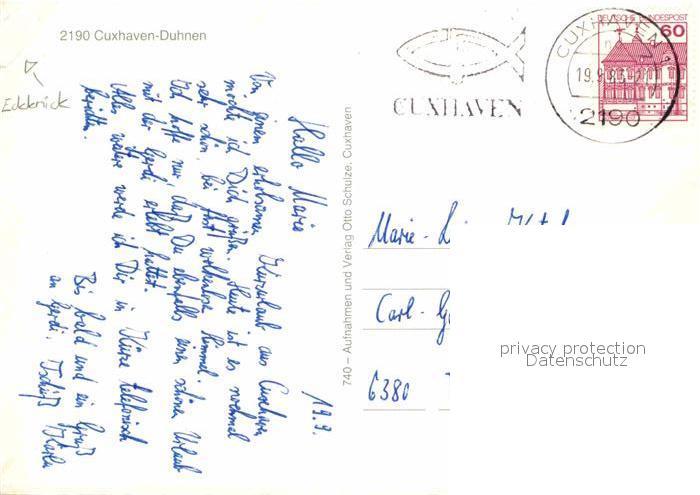 2190 Cuxhaven-Duhnen
Eckknick
19.9.
Hallo Maria
Von einem erholsamen Kurzurlaub aus Cuxhaven
möchte ich Dich grüßen. Heute ist es nochmal
sehr schön, bei fast wolkenlosem Himmel.
Ich hoffe nur, daß Du ebenfalls einen schönen Urlaub
mit der Gerdi erlebt hattest.
Alles weitere werde ich Dir in Kürze telefonisch
berichten.
Bis bald und ein Gruß
an Gerdi. Tschüß
740 – Aufnahmen und Verlag Otto Schulze, Cuxhaven
CUXHAVEN
CUXHAVEN 1
19.9.83
2190
DEUTSCHE BUNDESPOST
60
Marie-L
Carl-G
6380
privacy protection
Datenschutz